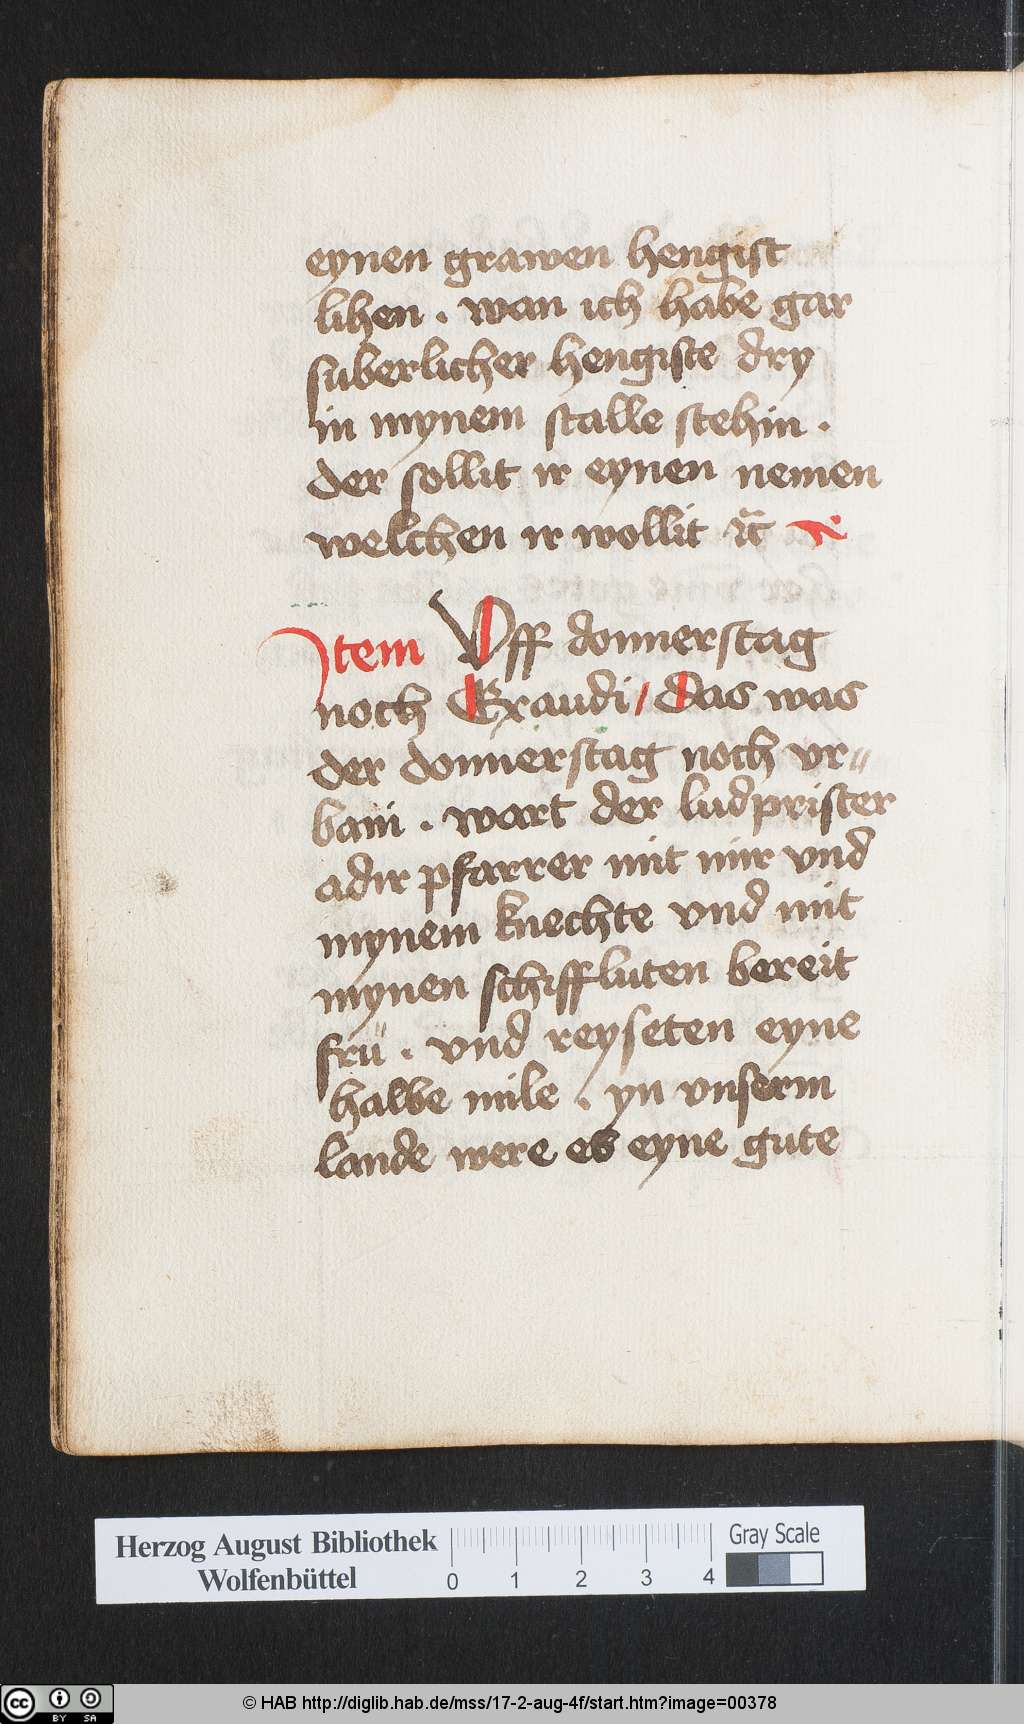 eynen grawen hengist
lihen . wan ich habe gar
suberlicher hengiste dry
in mynem stalle stehin .
der sollit ir eynen nemen
welchen ir wollit ꝛc̃
Item Vff donnerstag
noch Exaudi / Das was
der donnerstag noch vr⸗
bani . wart der ludprister
adir pfarrer mit mir vnd
mynem knechte vnd mit
mynen schiffluten bereit
frü . vnd reyseten eyne
halbe mile . yn vnserm
lande were es eyne gute
Herzog August Bibliothek
Wolfenbüttel
0 1 2 3 4
Gray Scale
cc BY SA
© HAB http://diglib.hab.de/mss/17-2-aug-4f/start.htm?image=00378